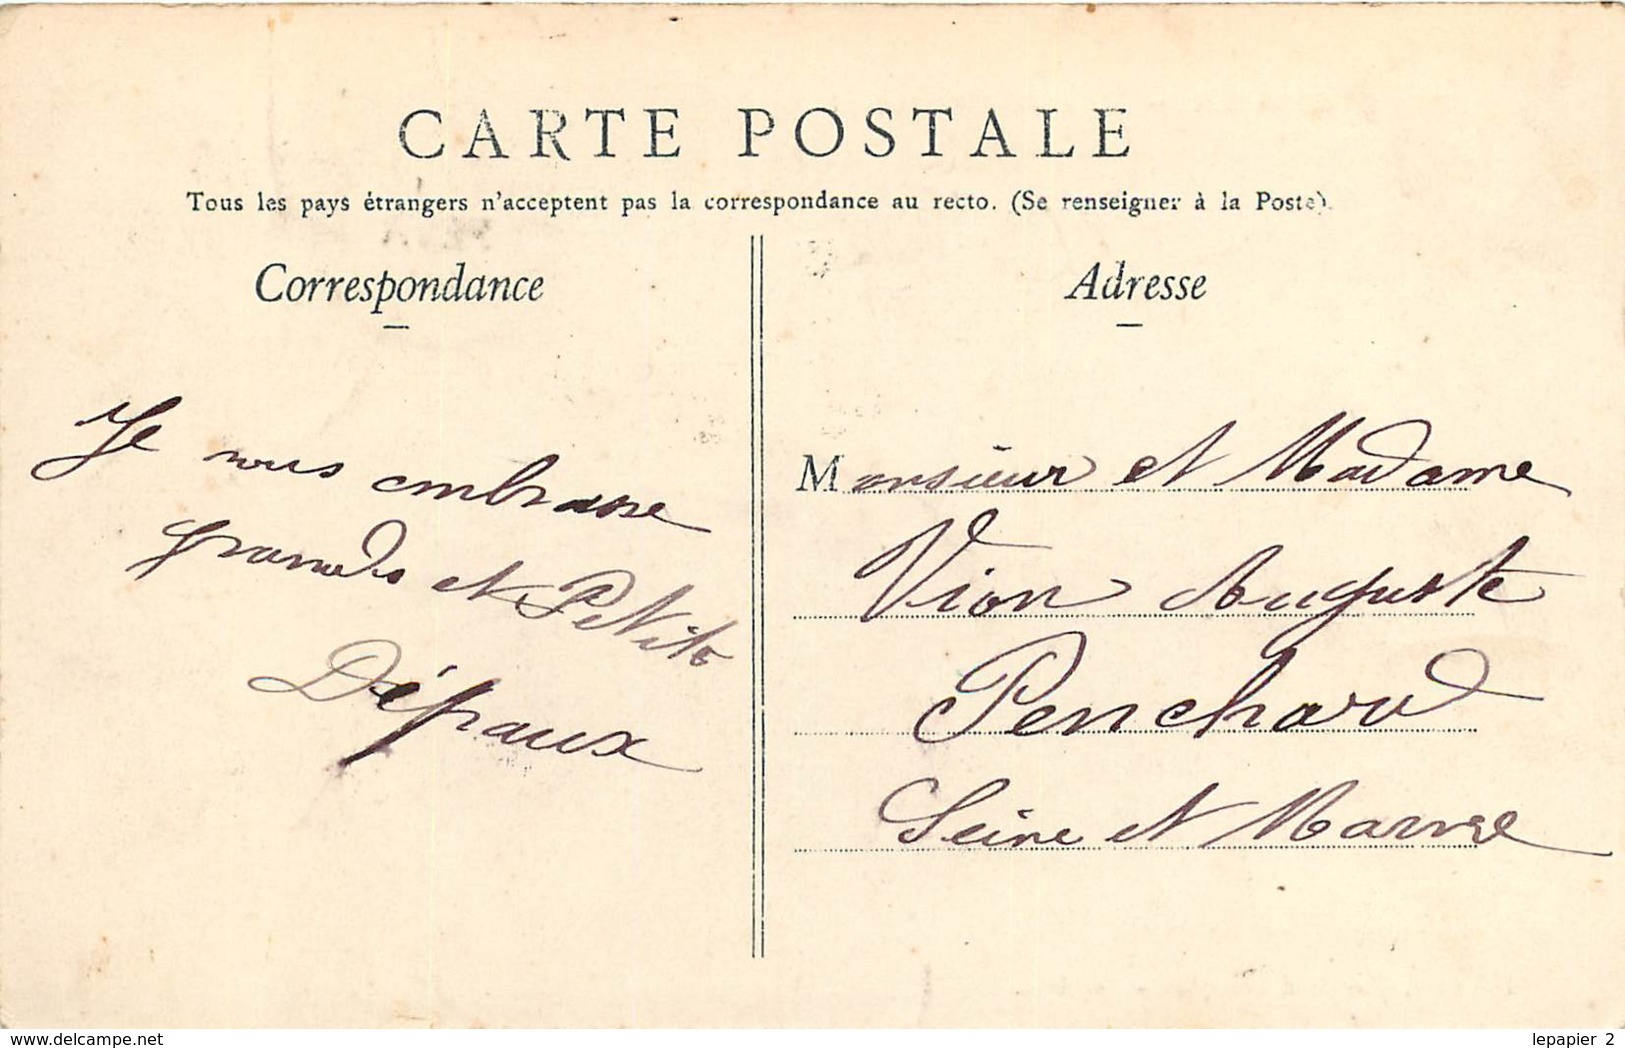 CARTE POSTALE
Tous les pays étrangers n'acceptent pas la correspondance au recto. (Se renseigner à la Poste).
Correspondance
Je vous embrasse
grands et Petits
Dépaux
Adresse
Monsieur et Madame
Vion Auguste
Penchard
Seine et Marne
delcampe.net
lepapier_2